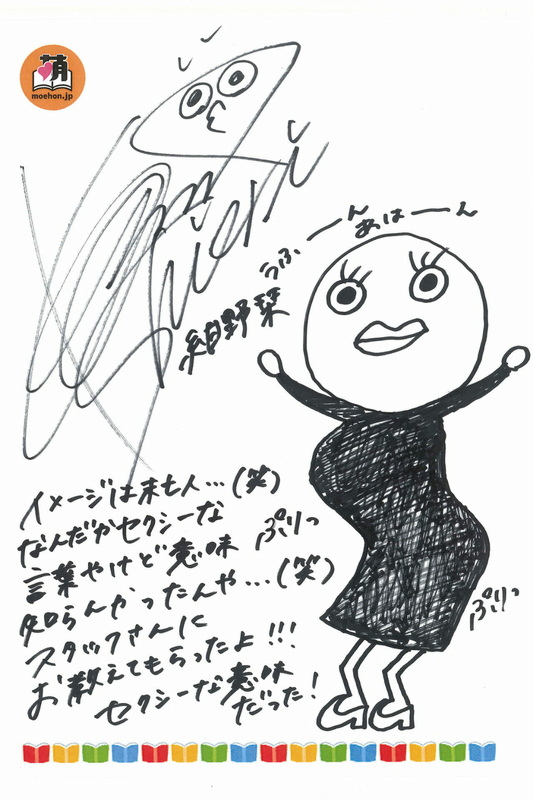 萌
moehon.jp
うふーん
あはーん
紺野栞
イメージは未亡人…(笑)
なんだかセクシーな
言葉やけど意味
知らんかったんや…(笑)
スタッフさんに
お教えてもらったよ!!!
セクシーな意味
だった!
ぷりっ
ぷりっ